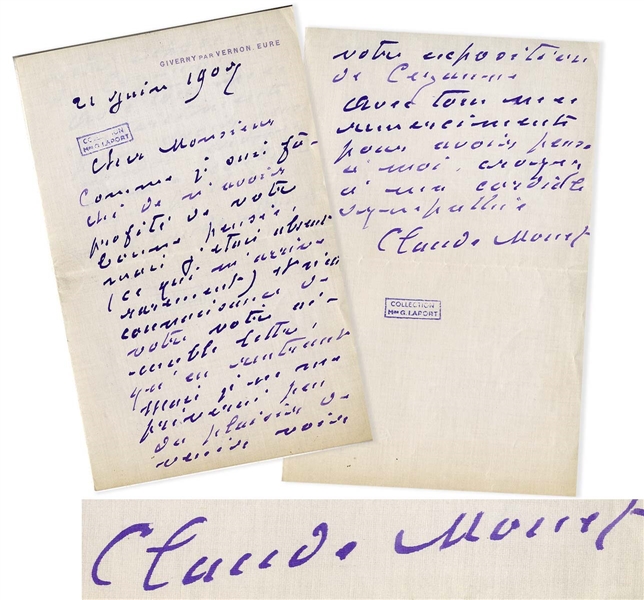 GIVERNY PAR VERNON. EURE
21 juin 1907
COLLECTION
Mme G. LAPORT
Cher Monsieur
Comme j suis fâ-
ché de n'avoir
profité de votre
bonne pensée,
mais j'étais absent
(ce qui m'arrive
rarement) et n'ai
connaissance de
votre votre ai-
mable lettre,
qu'en rentrant
mais j
prévenai pas
du plaisir de
venir voir
votre exposition
de Cezanne
avec tous mes
remerciments
pour avoir pensé
à moi, croyez
à ma cordiale
sympathie
Claude Monet
COLLECTION
Mme G. LAPORT
Claude Monet